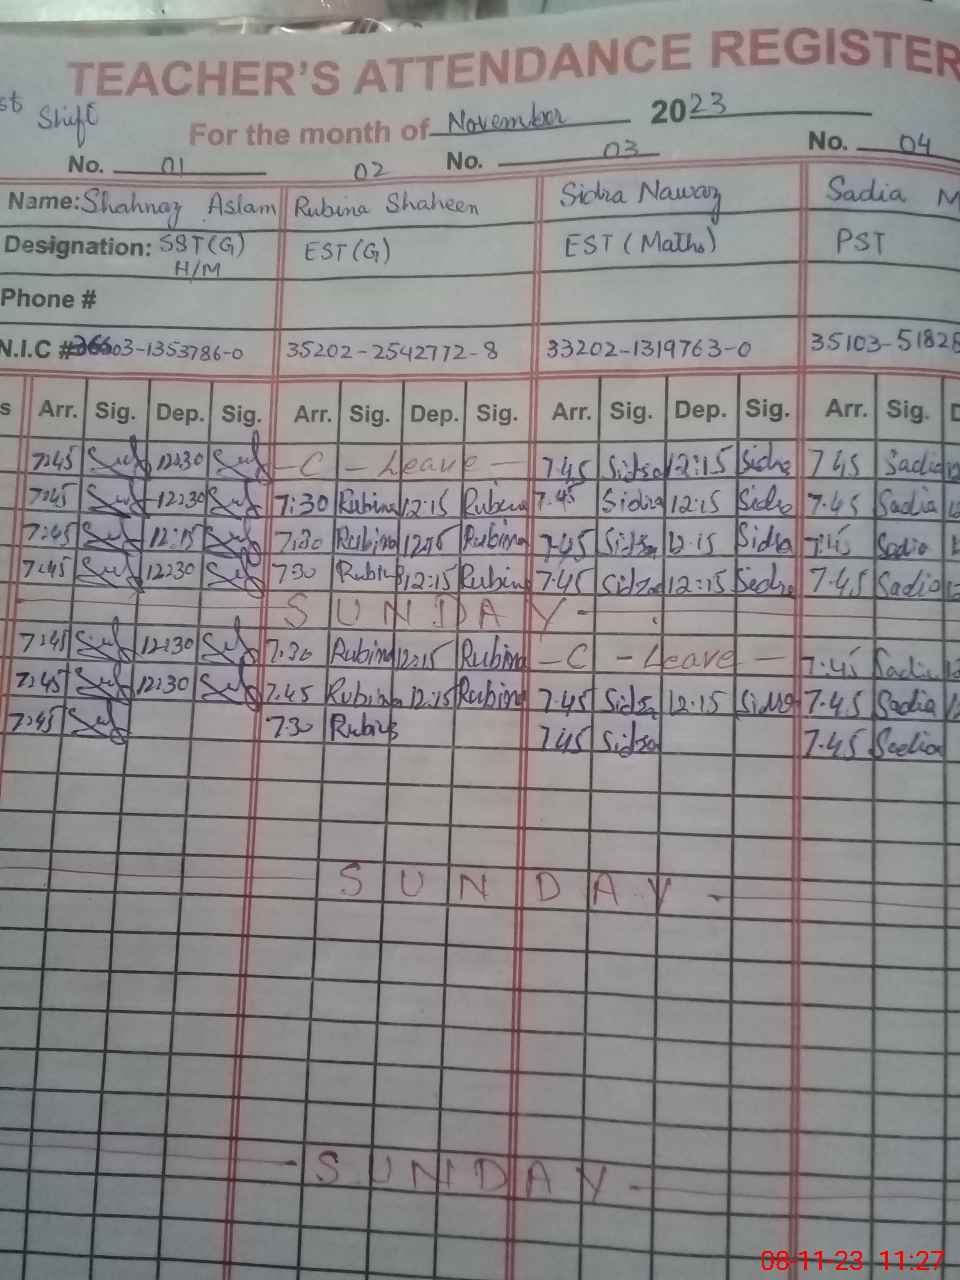 TEACHER'S ATTENDANCE REGISTER
st Shift
For the month of November 2023
No. 01 02 No. 03 No. 04
Name: Shahnaz Aslam Rubina Shaheen Sidra Nawaz Sadia M
Designation: SST(G) H/M EST(G) EST (Maths) PST
Phone #
N.I.C # 03-1353786-0 35202-2542772-8 33202-1319763-0 35103-5182
s Arr. Sig. Dep. Sig. Arr. Sig. Dep. Sig. Arr. Sig. Dep. Sig. Arr. Sig. D
7:45 12:30 - C - Leave - 7.45 Sidra 12:15 Sidra 7 45 Sadia
7:45 12:30 7:30 Rubina 12:15 Rubina 7.45 Sidra 12:15 Sidra 7.45 Sadia
7:45 12:15 7:30 Rubina 12:15 Rubina 7.45 Sidra 12.15 Sidra 7.45 Sadia
7:45 12:30 7 30 Rubina 12:15 Rubina 7.45 Sidra 12:15 Sidra 7.45 Sadia
SUNDAY -
7:45 12:30 7:30 Rubina 12:15 Rubina - C - Leave - 7.45 Sadia
7:45 12:30 7.45 Rubina 12:15 Rubina 7.45 Sidra 12.15 Sidra 7.45 Sadia
7:45 7.30 Rubina 7.45 Sidra 7.45 Sadia
SUNDAY -
- SUNDAY -
08-11-23 11:27